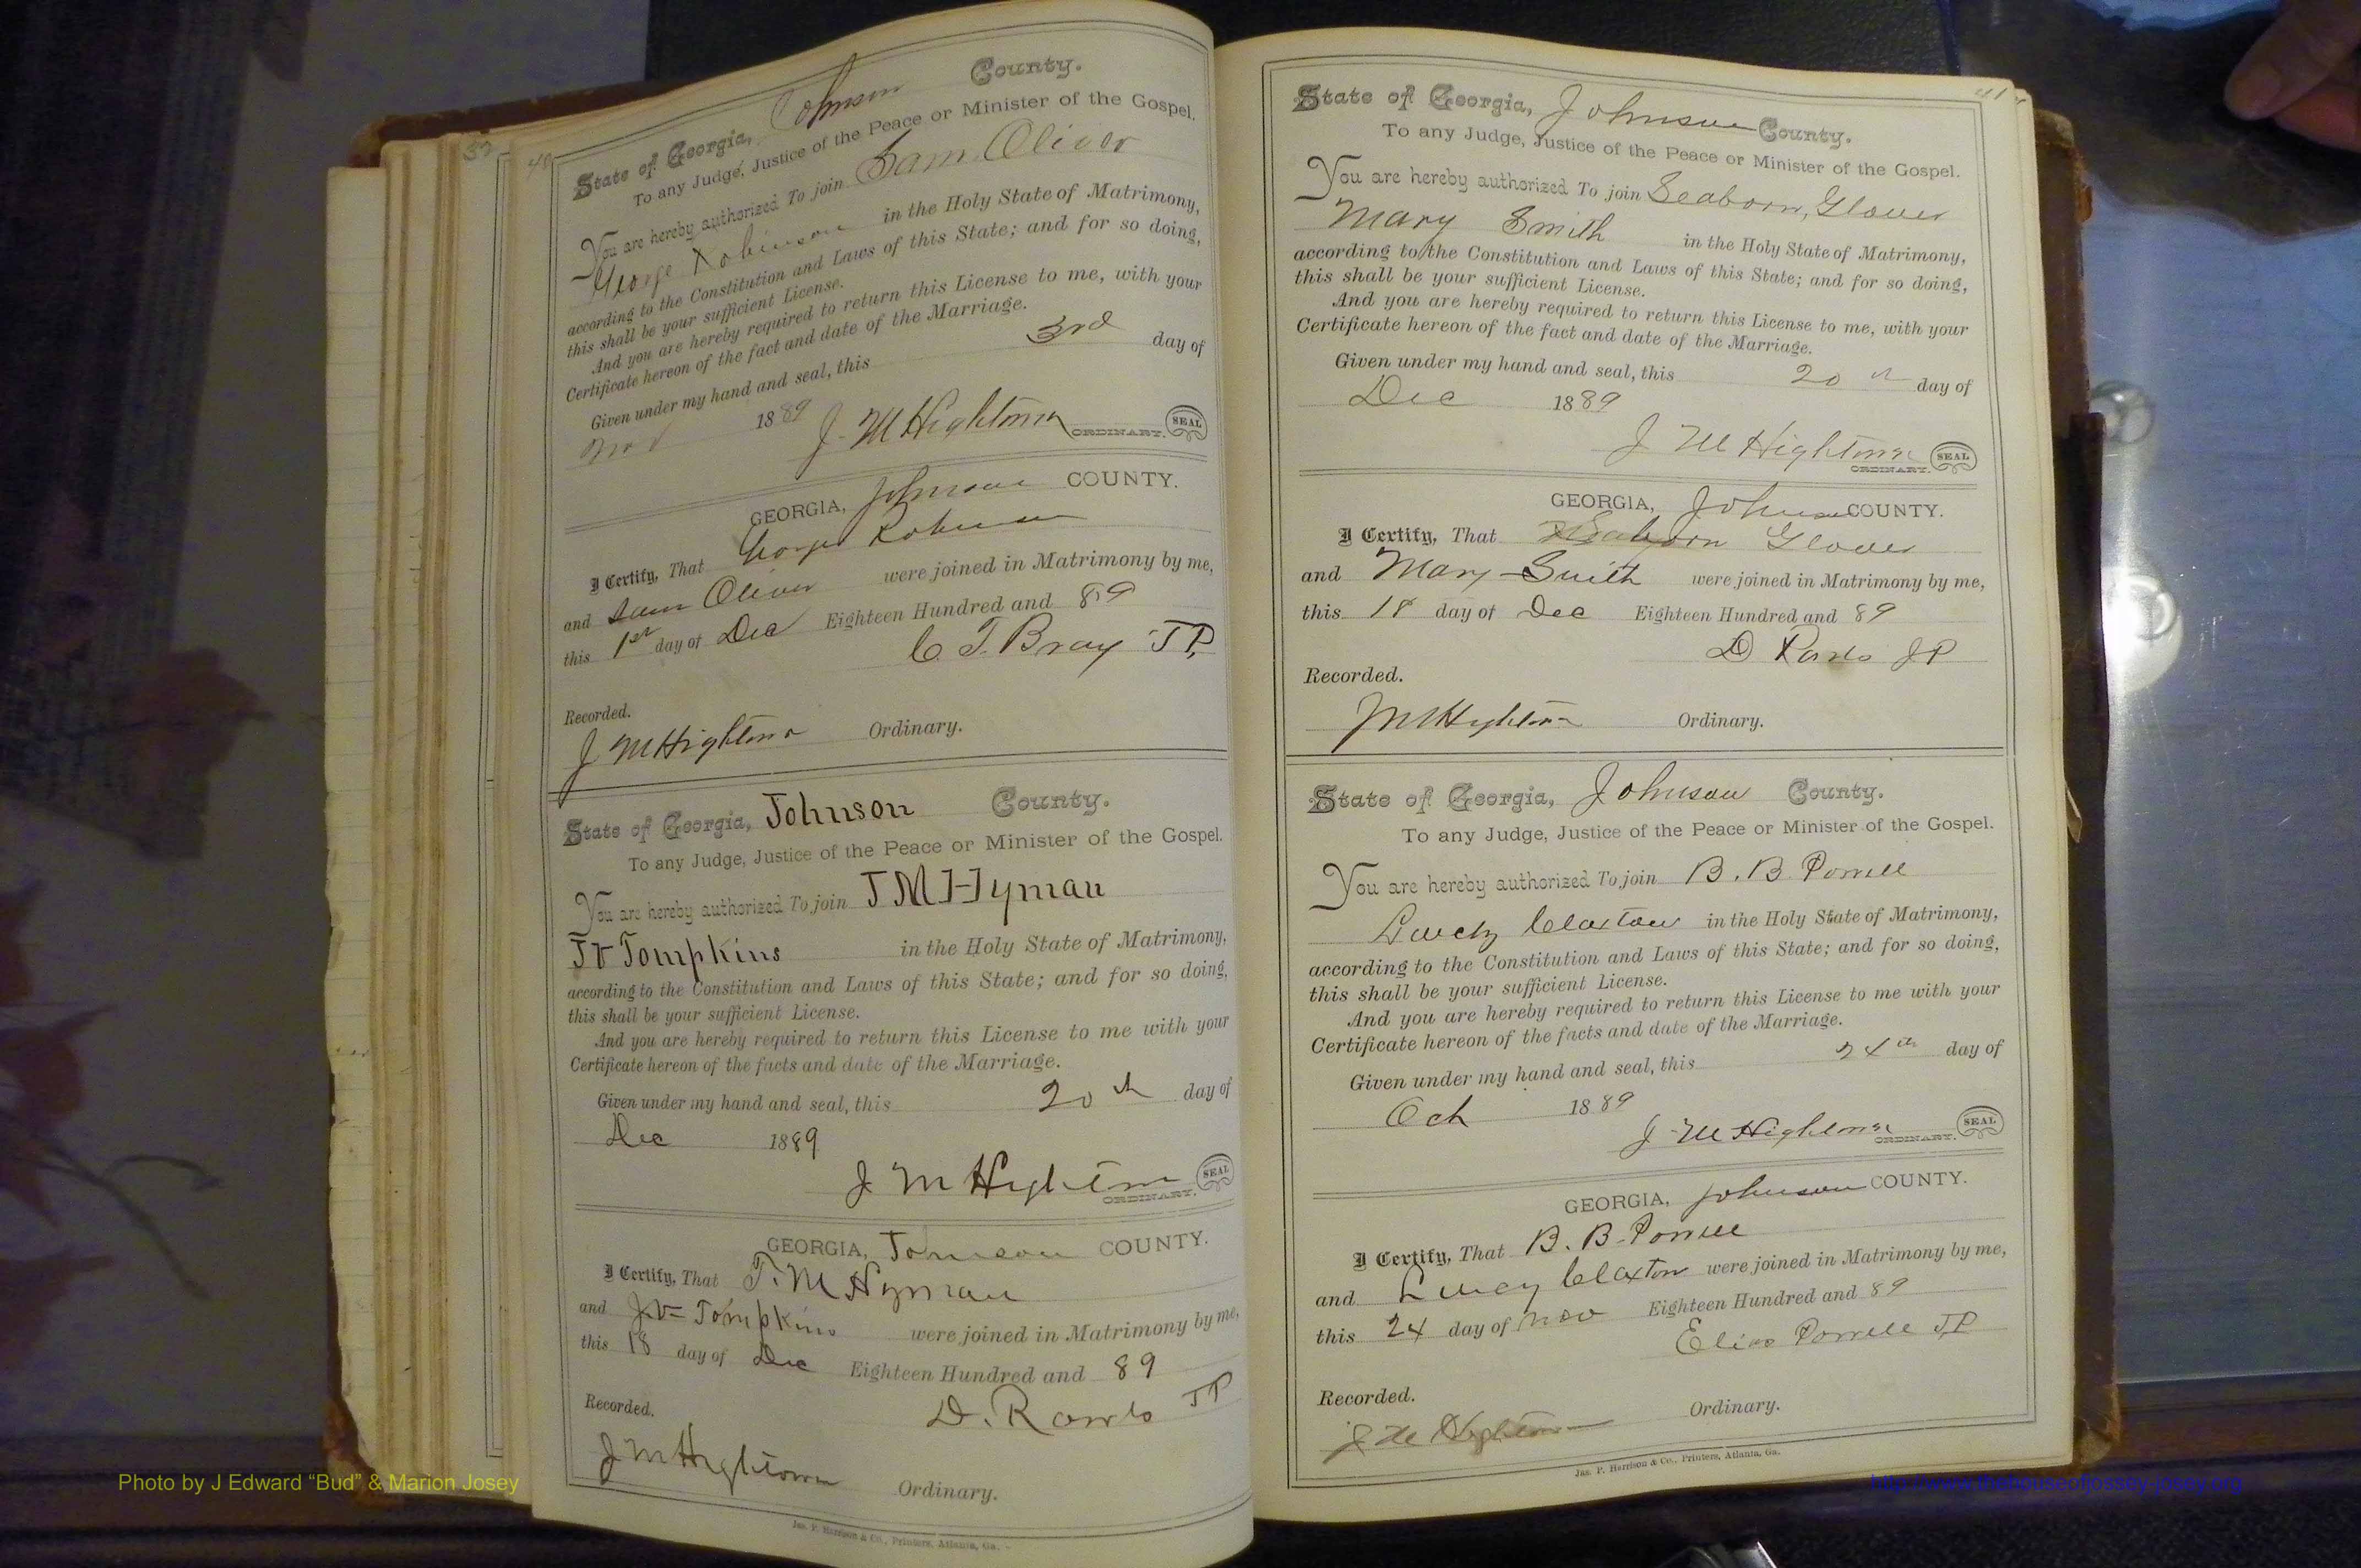 State of Georgia, Johnson County.
To any Judge, Justice of the Peace or Minister of the Gospel.
You are hereby authorized To join Sam Oliver
George Robinson in the Holy State of Matrimony,
according to the Constitution and Laws of this State; and for so doing,
this shall be your sufficient License.
And you are hereby required to return this License to me, with your
Certificate hereon of the fact and date of the Marriage.
Given under my hand and seal, this 3rd day of
1889 J. M Hightower ORDINARY. SEAL
GEORGIA, Johnson COUNTY.
I Certify, That George Robinson
and Sam Oliver were joined in Matrimony by me,
this 1st day of Dec Eighteen Hundred and 89
C. T. Bray J P,
Recorded.
J M Hightower Ordinary.
State of Georgia, Johnson County.
To any Judge, Justice of the Peace or Minister of the Gospel.
You are hereby authorized To join J M Hyman
J V Tompkins in the Holy State of Matrimony,
according to the Constitution and Laws of this State; and for so doing,
this shall be your sufficient License.
And you are hereby required to return this License to me with your
Certificate hereon of the facts and date of the Marriage.
Given under my hand and seal, this 20th day of
Dec 1889
J M Hightower ORDINARY. SEAL
GEORGIA, Johnson COUNTY.
I Certify, That J. M Hyman
and J V Tompkins were joined in Matrimony by me,
this 18 day of Dec Eighteen Hundred and 89
D. Rowls J P
Recorded.
J M Hightower Ordinary.
Jas. P. Harrison & Co., Printers, Atlanta, Ga.
State of Georgia, Johnson County.
To any Judge, Justice of the Peace or Minister of the Gospel.
You are hereby authorized To join Seaborn, Glover
Mary Smith in the Holy State of Matrimony,
according to the Constitution and Laws of this State; and for so doing,
this shall be your sufficient License.
And you are hereby required to return this License to me, with your
Certificate hereon of the fact and date of the Marriage.
Given under my hand and seal, this 20th day of
Dec 1889
J M Hightower ORDINARY. SEAL
GEORGIA, Johnson COUNTY.
I Certify, That Seaborn Glover
and Mary Smith were joined in Matrimony by me,
this 18 day of Dec Eighteen Hundred and 89
D Rowls J P
Recorded.
J M Hightower Ordinary.
State of Georgia, Johnson County.
To any Judge, Justice of the Peace or Minister of the Gospel.
You are hereby authorized To join B. B Powell
Lucy Claxton in the Holy State of Matrimony,
according to the Constitution and Laws of this State; and for so doing,
this shall be your sufficient License.
And you are hereby required to return this License to me with your
Certificate hereon of the facts and date of the Marriage.
Given under my hand and seal, this 24th day of
Oct 1889
J M Hightower ORDINARY. SEAL
GEORGIA, Johnson COUNTY.
I Certify, That B. B. Powell
and Lucy Claxton were joined in Matrimony by me,
this 24 day of Nov Eighteen Hundred and 89
Elias Powell J P
Recorded.
J M Hightower Ordinary.
Jas. P. Harrison & Co., Printers, Atlanta, Ga.
Photo by J Edward “Bud” & Marion Josey
http://www.thehouseofjossey-josey.org